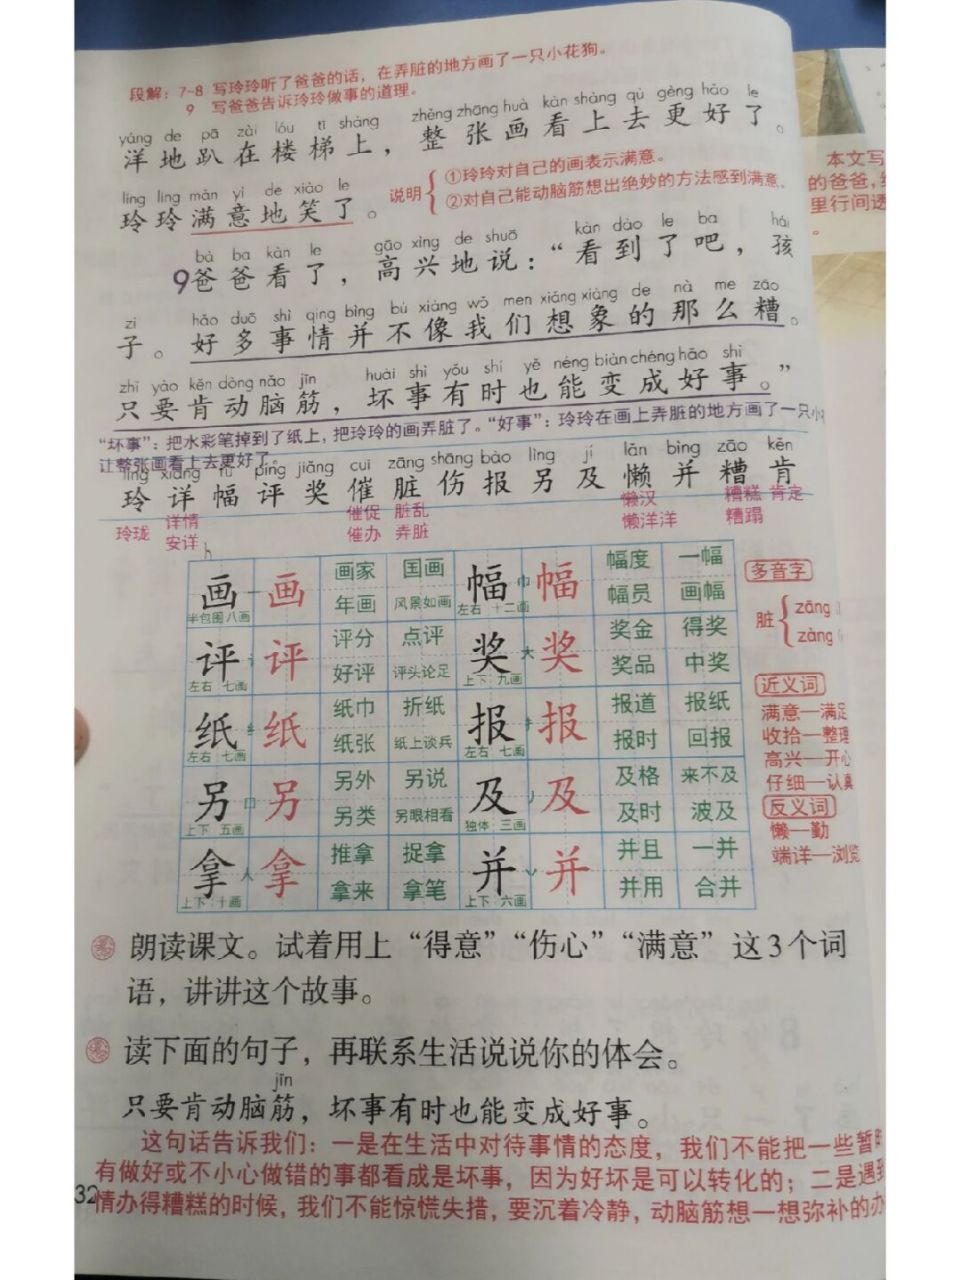 段解：7~8 写玲玲听了爸爸的话，在弄脏的地方画了一只小花狗。
9 写爸爸告诉玲玲做事的道理。
yáng de pā zài lóu tī shàng zhěng zhāng huà kàn shàng qù gèng hǎo le
洋地趴在楼梯上，整张画看上去更好了。
líng ling mǎn yì de xiào le
玲玲满意地笑了。
说明
①玲玲对自己的画表示满意。
②对自己能动脑筋想出绝妙的方法感到满意。
bà ba kàn le gāo xìng de shuō kàn dào le ba hái
9爸爸看了，高兴地说：“看到了吧，孩
zi hǎo duō shì qing bìng bú xiàng wǒ men xiǎng xiàng de nà me zāo
子。好多事情并不像我们想象的那么糟。
zhǐ yào kěn dòng nǎo jīn huài shì yǒu shí yě néng biàn chéng hǎo shì
只要肯动脑筋，坏事有时也能变成好事。”
“坏事”：把水彩笔掉到了纸上，把玲玲的画弄脏了。“好事”：玲玲在画上弄脏的地方画了一只小
让整张画看上去更好了。
líng xiáng fú píng jiǎng cuī zāng shāng bào lìng jí lǎn bìng zāo kěn
玲详幅评奖催脏伤报另及懒并糟肯
玲珑 详情 催促 脏乱 懒汉 糟糕 肯定
安详 催办 弄脏 懒洋洋 糟蹋
画 画 画家 国画 幅 巾 幅 幅度 一幅
半包围 八画 年画 风景如画 左右 十二画 幅员 画幅
评 评 评分 点评 奖 大 奖 奖金 得奖
左右 七画 好评 评头论足 上下 九画 奖品 中奖
纸 纸 纸巾 折纸 报 扌 报 报道 报纸
左右 七画 纸张 纸上谈兵 左右 七画 报时 回报
另 口 另 另外 另说 及 丿 及 及格 来不及
上下 五画 另类 另眼相看 独体 三画 及时 波及
拿 人 拿 推拿 捉拿 并 并 并且 一并
上下 十画 拿来 拿笔 上下 六画 并用 合并
多音字
脏
zāng
zàng
近义词
满意—满足
收拾—整理
高兴—开心
仔细—认真
反义词
懒—勤
端详—浏览
本文写
的爸爸，
里行间透
朗读课文。试着用上“得意”“伤心”“满意”这3个词
语，讲讲这个故事。
读下面的句子，再联系生活说说你的体会。
jīn
只要肯动脑筋，坏事有时也能变成好事。
这句话告诉我们：一是在生活中对待事情的态度，我们不能把一些暂时
有做好或不小心做错的事都看成是坏事，因为好坏是可以转化的；二是遇到
32
情办得糟糕的时候，我们不能惊慌失措，要沉着冷静，动脑筋想一想弥补的办